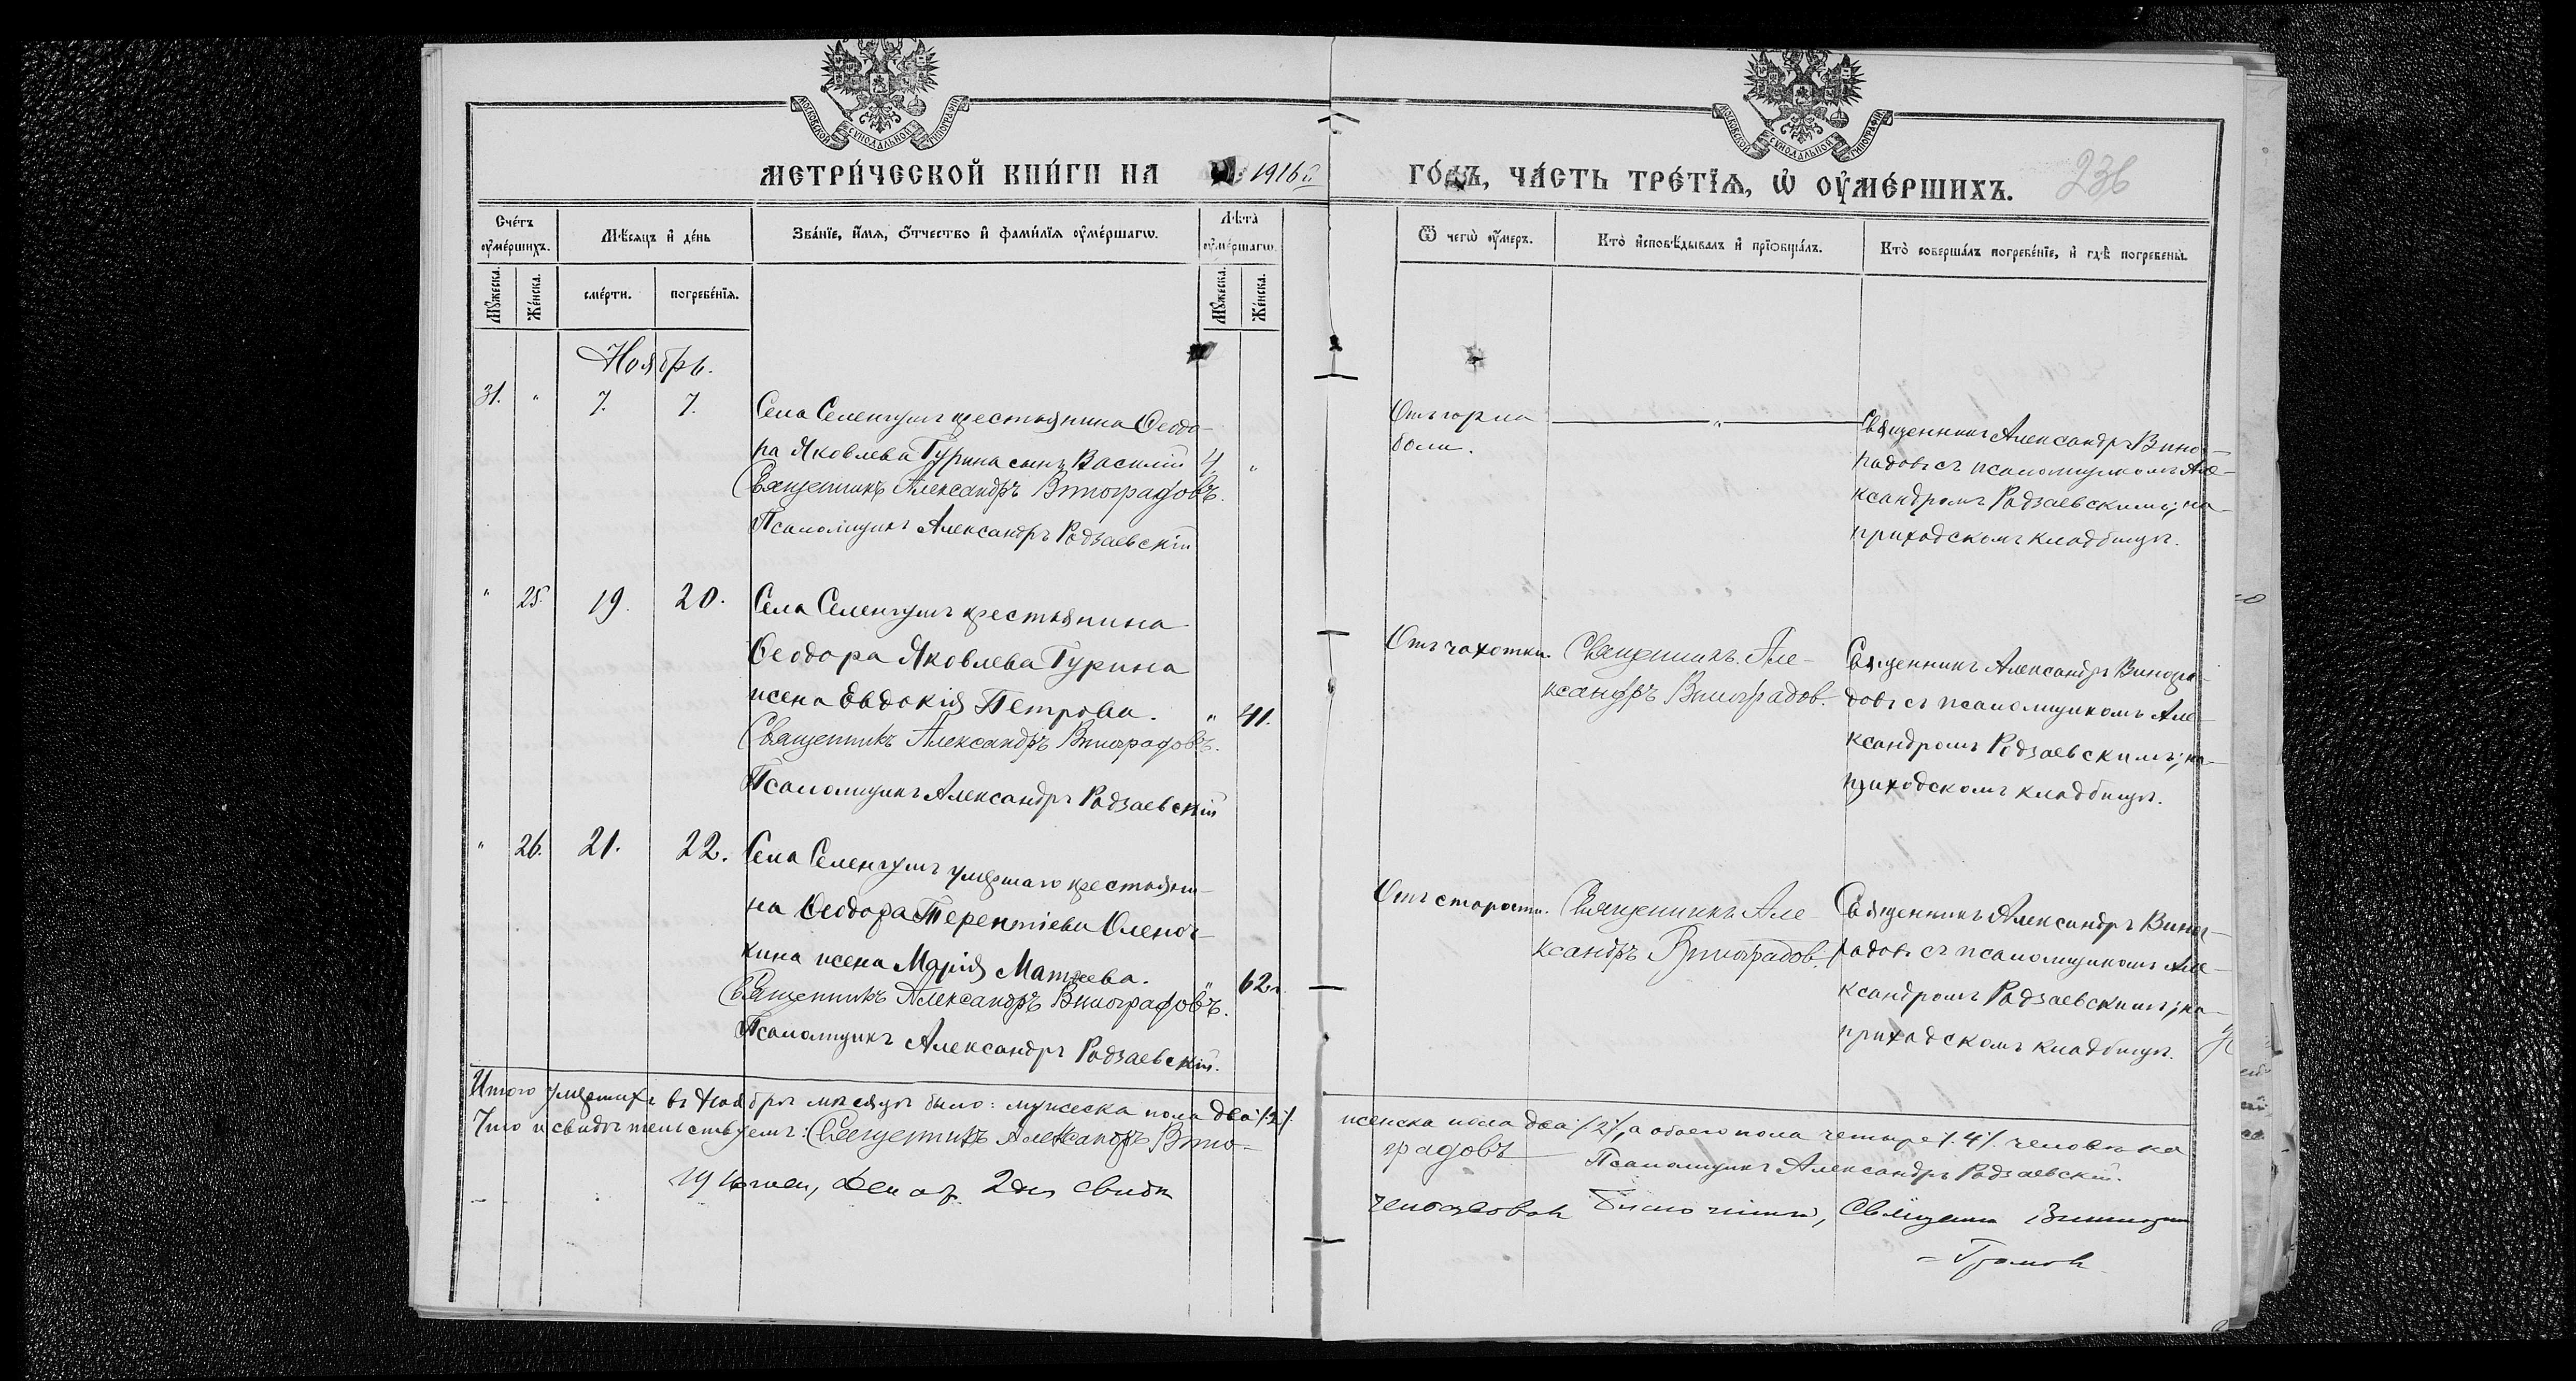 МОСКОВСКОЙ СѴНОДАЛЬНОЙ ТИПОГРАФІИ
МОСКОВСКОЙ СѴНОДАЛЬНОЙ ТИПОГРАФІИ
МЕТРИ́ЧЕСКОЙ КНИ́ГИ НА 1916й ГО́ДЪ, ЧА́СТЬ ТРЕ́ТІѦ, Ѡ҆ ОУ҆МЕ́РШИХЪ.
236
Сче́тъ оу҆ме́ршихъ.
Мѣ́сяцъ и҆ де́нь
Зва́нїе, и҆́мѧ, ѻ҆́тчество и҆ фами́лїѧ оу҆ме́ршагѡ.
Лѣ́та оу҆ме́ршагѡ.
Ѿ чегѡ̀ оу҆́меръ.
Кто̀ и҆сповѣ́дывалъ и҆ прїѡбща́лъ.
Кто̀ соверша́лъ погребе́нїе, и҆ гдѣ̀ погребены̀.
Мꙋ́жеска.
Же́нска.
сме́рти.
погребе́нїѧ.
Мꙋ́жеска.
Же́нска.
Ноябрь.
31. " 7. 7.
Села Селенгушъ крестьянина Ѳеодо-
ра Яковлева Гурина сынъ Василій 4. "
Священникъ Александръ Виноградовъ.
Псаломщикъ Александръ Радзаевскій
Отъ горла
боли.
"
Священникъ Александръ Виног-
радовъ съ псаломщикомъ Але-
ксандромъ Радзаевскимъ; на
приходскомъ кладбищѣ.
" 25. 19. 20.
Села Селенгушъ крестьянина
Ѳеодора Яковлева Гурина
жена Евдокія Петрова. " 41.
Священникъ Александръ Виноградовъ.
Псаломщикъ Александръ Радзаевскій
Отъ чахотки.
Священникъ Але-
ксандръ Виноградов.
Священникъ Александръ Виногра-
довъ съ псаломщикомъ Але-
ксандромъ Радзаевскимъ; на
приходскомъ кладбищѣ.
" 26. 21. 22.
Села Селенгушъ умершаго крестьяни-
на Ѳеодора Терентіева Оленоч-
кина жена Марія Матѳеева. " 62.
Священникъ Александръ Виноградовъ.
Псаломщикъ Александръ Радзаевскій.
Отъ старости.
Священникъ Але-
ксандръ Виноградов.
Священникъ Александръ Виног-
радовъ съ псаломщикомъ Але-
ксандромъ Радзаевскимъ; на
приходскомъ кладбищѣ.
Итого умершихъ въ Ноябрѣ мѣсяцѣ было: мужеска пола два /2/. женска пола два /2/, а обоего пола четыре /4/ человѣка
Что и свидѣтельствуемъ: Священникъ Александръ Вино-
градовъ
Псаломщикъ Александръ Радзаевскій.
1916 2 дня свидѣ
Благочинный, Священникъ